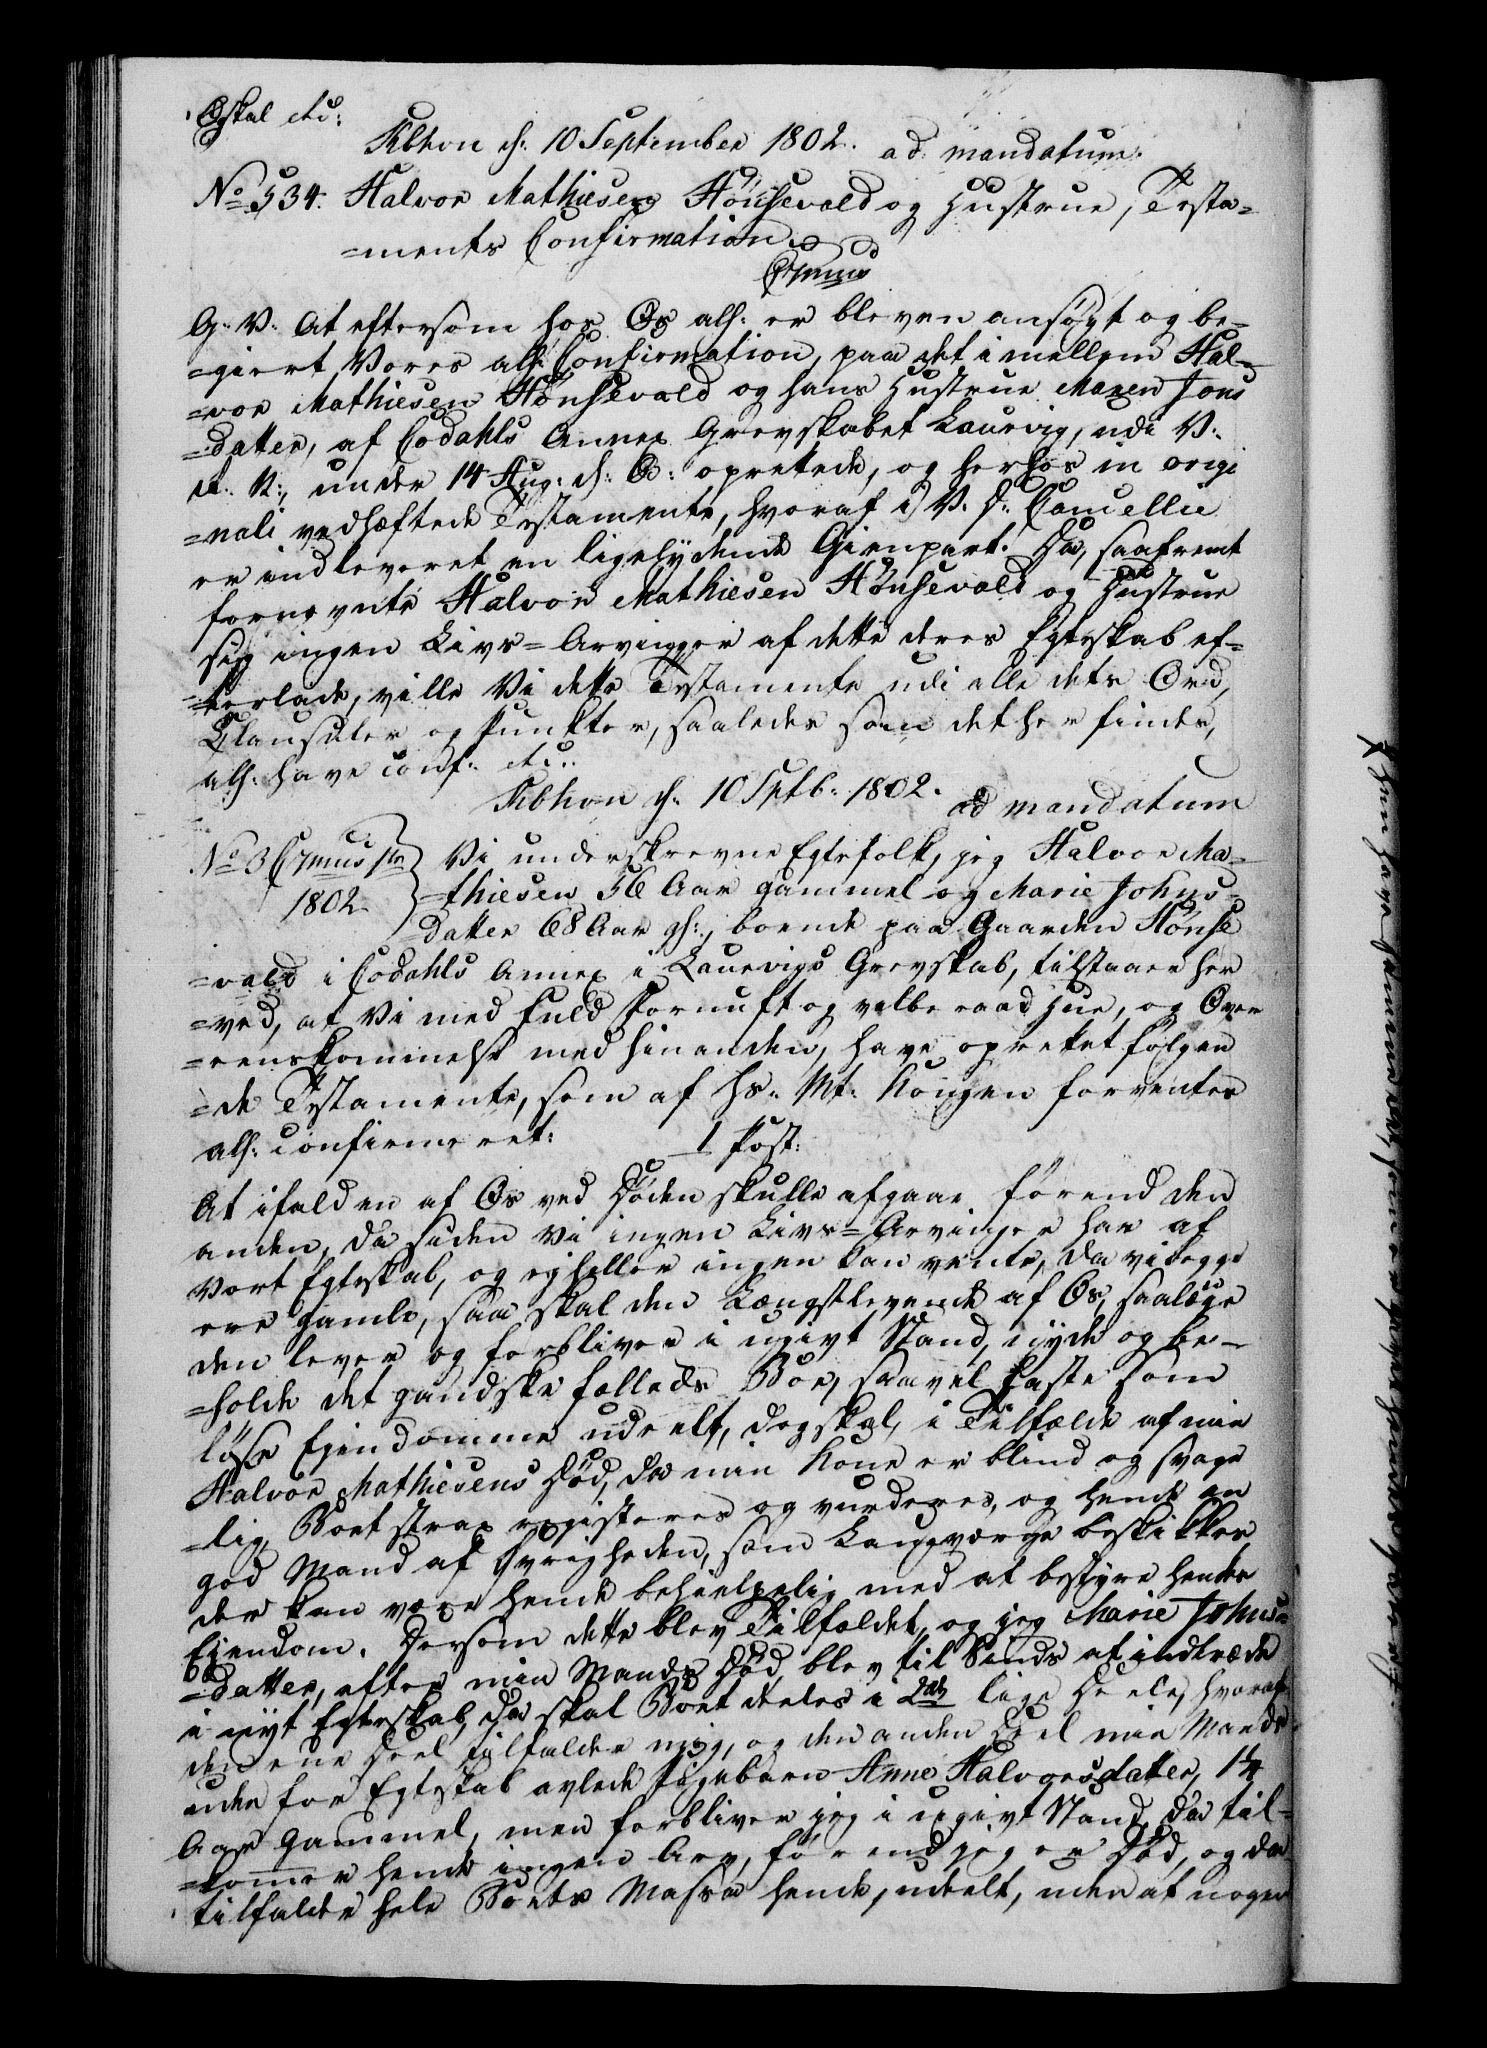 Øskal etc:
Kbhvn d: 10 September 1802. ad mandatum.
No 534. Halvor Mathiesen Hönsevald og Hustrue, Testa=
=ments Confirmation.
G: V: At eftersom hos Os all: er bleven ansøgt og be=
=giert Vores all: Confirmation, paa det imellem Hal=
=vor Mathiesen Hönsevald og hans Hustrue Maren Jons
=datter, af Codahls Annex Grevskabet Laurvig, udi V:
R: N:, under 14 Aug: d: A: oprettede, og herhos in origi
=nali vedhæftede Testamente, hvoraf i V. D: Cancellie
er indleveret en ligelydende Gienpart: Da, saafremt
fornevnte Halvor Mathiesen Hönsevald og Hustrue
sig ingen Livs=Arvinger af dette deres Egteskab ef=
=terlade, ville Vi dette Testamente udi alle dets Ord,
Clausuler og Punkter, saaledes som det her findes,
all: have conf: etc:.
Kbhvn d. 10 Septb: 1802. ad mandatum
No 3
1802.
Vi underskrevne Egtefolk, jeg Halvor Ma=
=thiesen 56 Aar gammel og Marie Johns=
=datter 68 Aar gl:, boende paa Gaarden Hönse
=vald i Codahls Annex i Laurvigs Grevskab, tilstaaer her
=ved, at Vi med fuld Fornuft og velberaad Hue, og Over
=eenskommelse med hinanden, have oprettet følgen
=de Testamente, som af Hs: Mt: Kongen forventes
all: confirmeret:
1 Post:
At ifald en af Os ved Döden skulle afgaae förend den
anden, da siden Vi ingen Livs=Arvinger har af
Vort Egteskab, og ej heller ingen kan vente, da vi begge
ere gamle, saa skal den Længstlevende af Os, saalænge
den lever og forbliver i ugivt Stand, nyde og be=
=holde det gandske fælleds Boe, saavel faste som
löse Ejendomme udeelt, dog skal, i Tilfælde af min
Halvor Mathiesens Död, da min Kone er blind og svage
=lig, Boet strax registeres og vurderes, og hende en
god Mand af Övrigheden, som Laugværge beskikkes,
der kan være hende behielpelig med at bestyre hendes
Ejendom. Dersom dette blev Tilfældet, og jeg Marie Johns=
=datter, efter min Mands Död blev til Sinds at indtræde
i nyt Egteskab, da skal Boet deeles i 2de lige Deele, hvoraf
den ene Deel tilfalder mig, og den anden Deel min Mands
uden for Egteskab avlede Pigebarn Anne Halvorsdatter, 14
Aar gammel, men forbliver jeg i ugivt Stand, da til=
=kommer hende ingen Arv, förend jeg er Död, og da
tilfalder hele Boets Massa hende, udeelt, uden at nogen